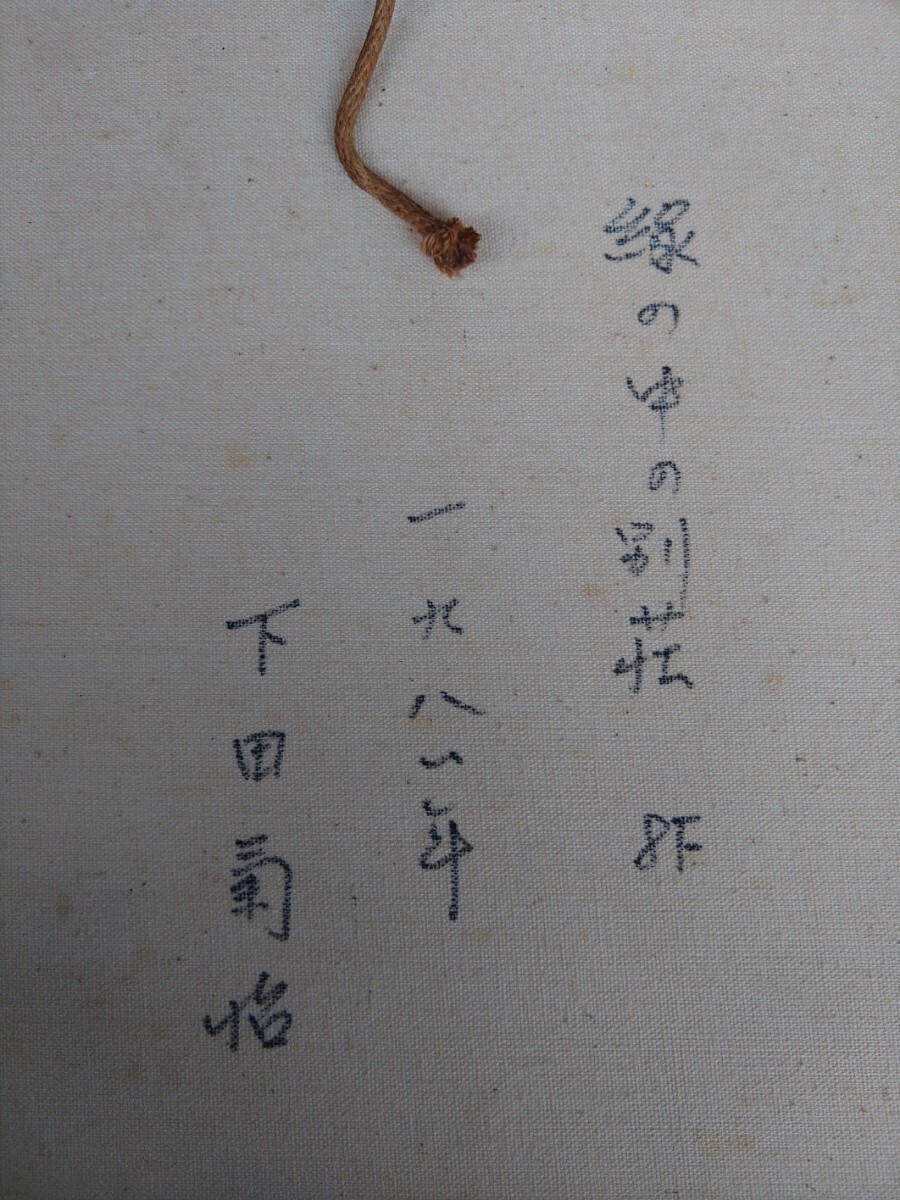 緑の中の別荘 8F
一九八 年
下田菊怡